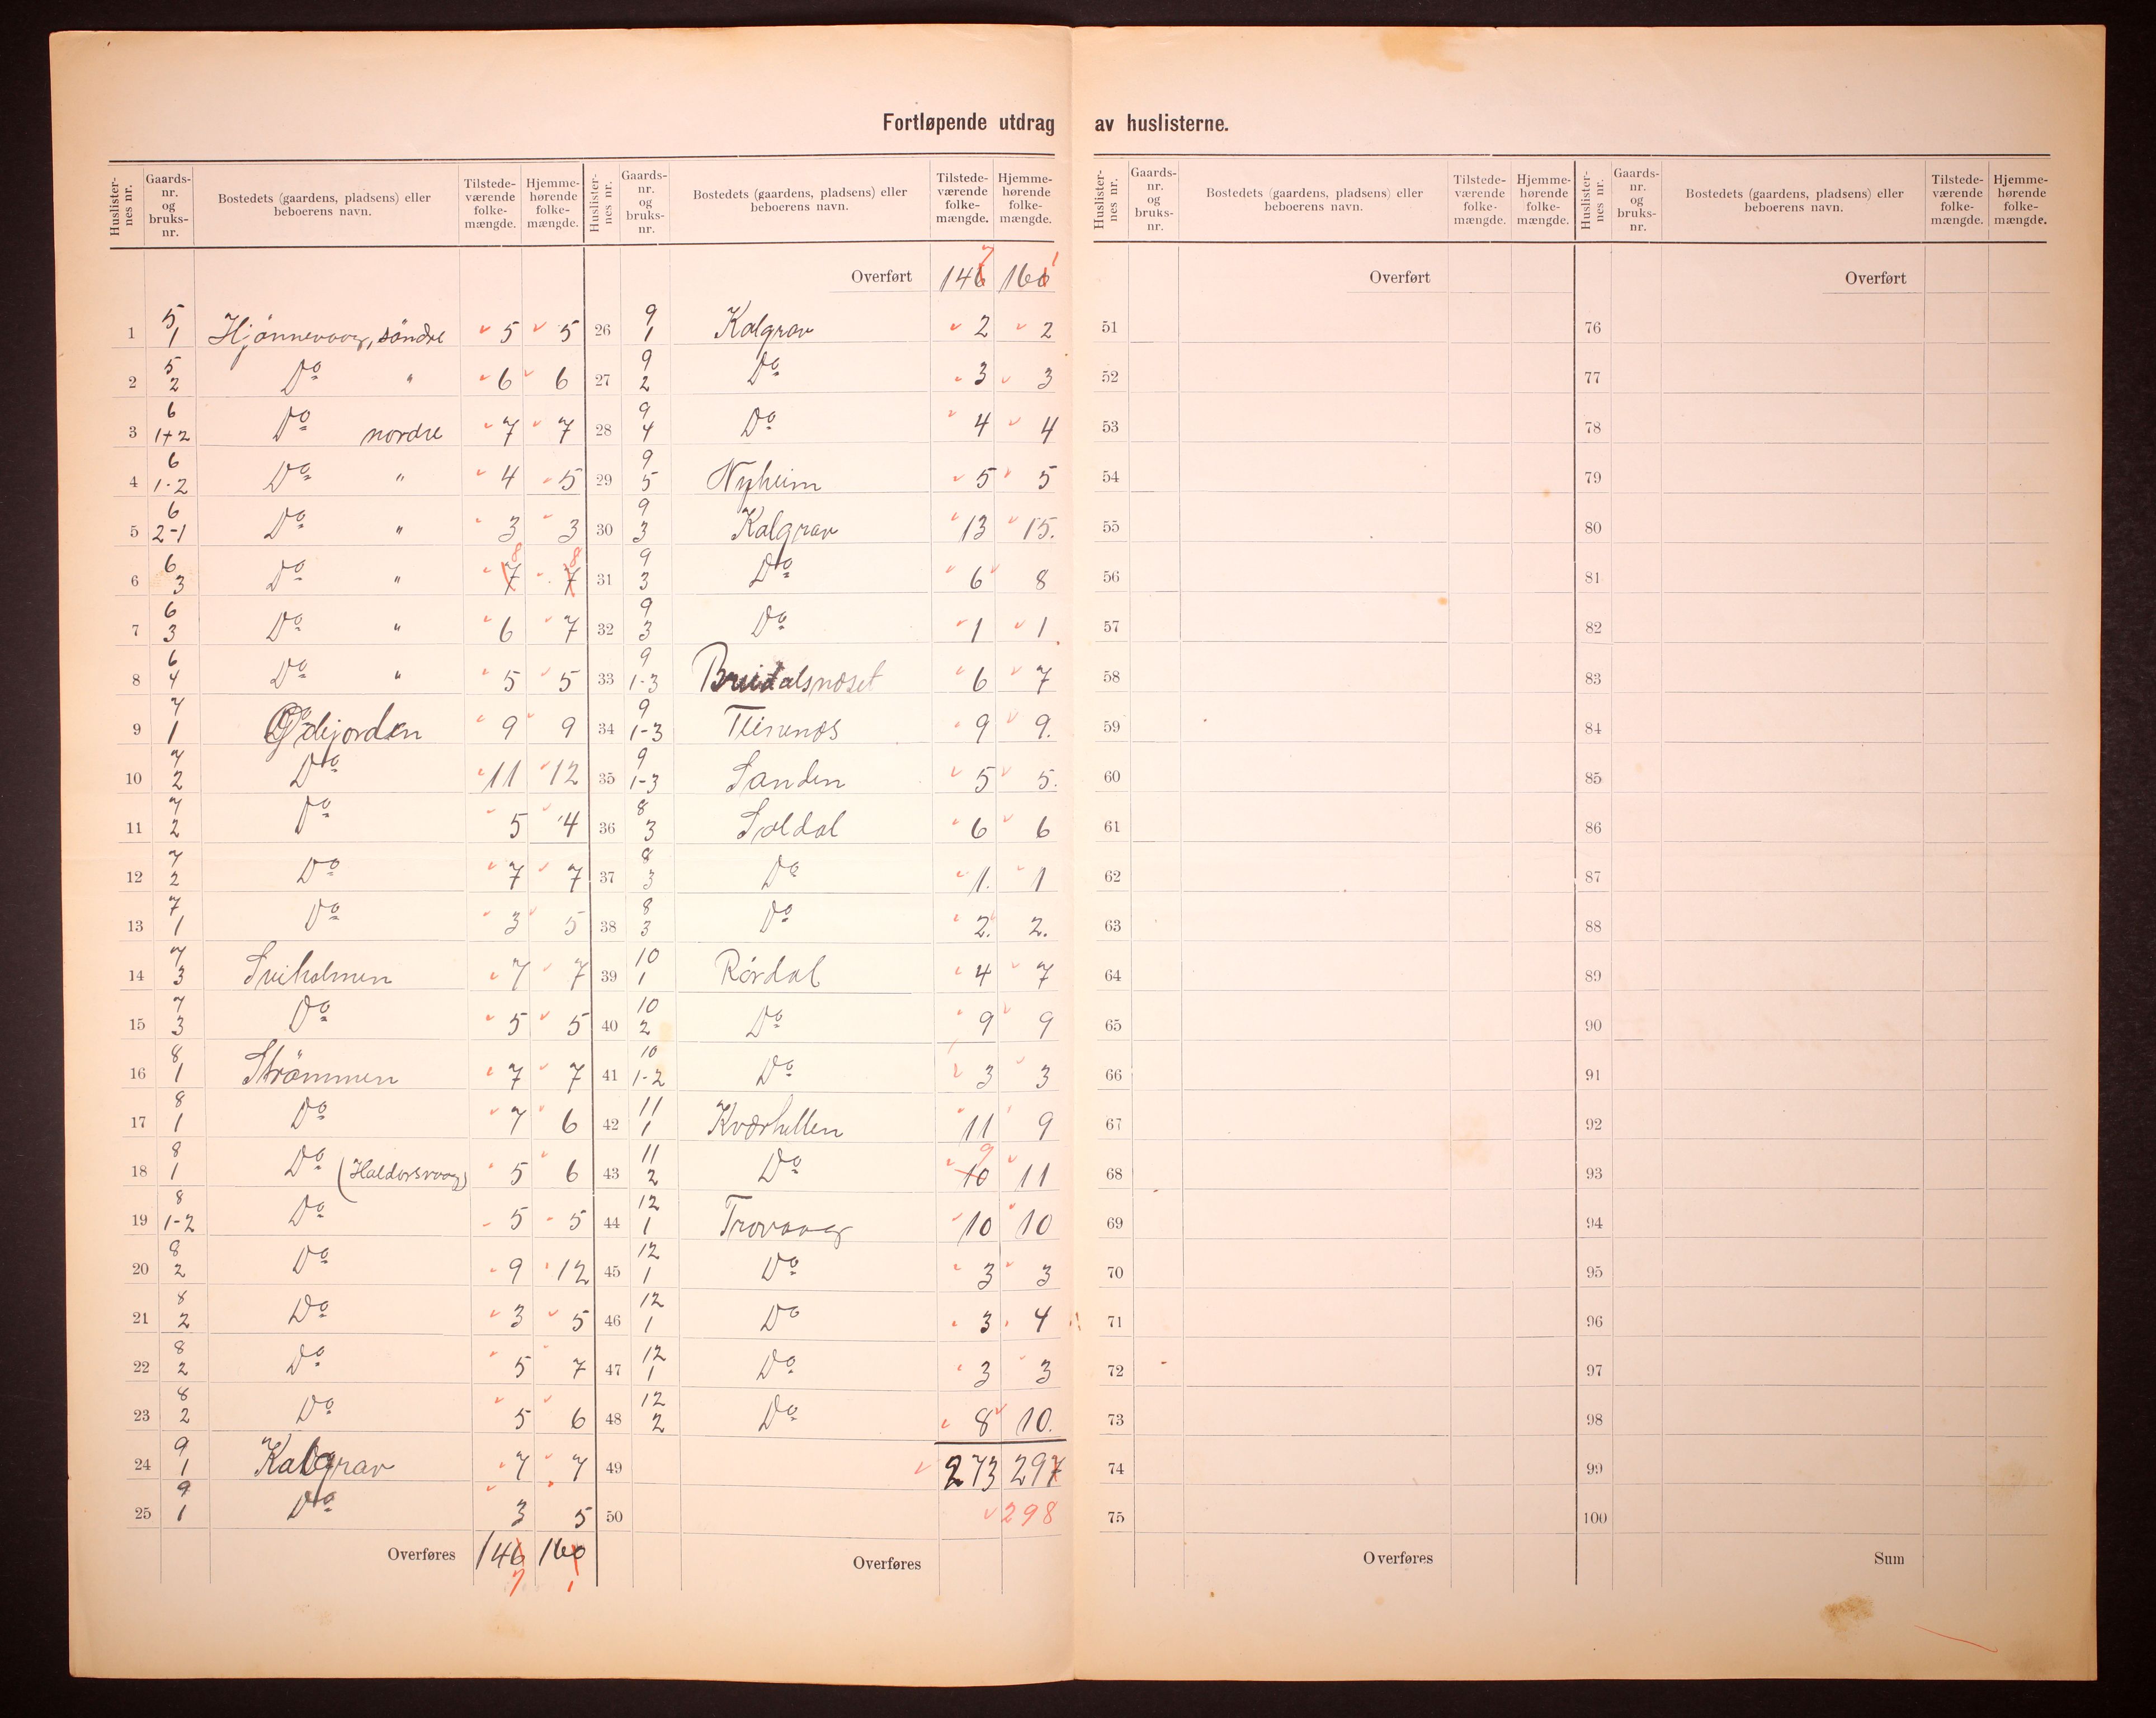 Fortløpende utdrag av huslisterne.
Huslister-nes nr. Gaards-nr. og bruks-nr. Bostedets (gaardens, pladsens) eller beboerens navn. Tilstede-værende folke-mængde. Hjemme-hørende folke-mængde.
1 5/1 Hjönnevaag, söndre 5 5
2 5/2 Do " 6 6
3 6/1+2 Do nordre 7 7
4 6/1-2 Do " 4 5
5 6/2-1 Do " 3 3
6 6/3 Do " 7 8 7 8
7 6/3 Do " 6 7
8 6/4 Do " 5 5
9 7/1 9 9
10 7/2 Do 11 12
11 7/2 Do 5 4
12 7/2 Do 7 7
13 7/1 Do 3 5
14 7/3 Sviholmen 7 7
15 7/3 Do 5 5
16 8/1 Strömmen 7 7
17 8/1 Do 7 6
18 8/1 Do (Haldorsvaag) 5 6
19 8/1-2 Do 5 5
20 8/2 Do 9 12
21 8/2 Do 3 5
22 8/2 Do 5 7
23 8/2 Do 5 6
24 9/1 Kalgrav 7 7
25 9/1 Do 3 5
Overføres 146 7 160 1
Huslister-nes nr. Gaards-nr. og bruks-nr. Bostedets (gaardens, pladsens) eller beboerens navn. Tilstede-værende folke-mængde. Hjemme-hørende folke-mængde.
Overført 146 7 160 1
26 9/1 Kalgrav 2 2
27 9/2 Do 3 3
28 9/4 Do 4 4
29 9/5 Nyheim 5 5
30 9/3 Kalgrav 13 15.
31 9/3 Do 6 8
32 9/3 Do 1 1
33 9/1-3 6 7
34 9/1-3 9 9.
35 9/1-3 Sanden 5 5.
36 8/3 Soldal 6 6
37 8/3 Do 1. 1
38 8/3 Do 2. 2.
39 10/1 Rördal 4 7
40 10/2 Do 9 9
41 10/1-2 Do 3 3
42 11/1 Kværhellen 11 9
43 11/2 Do 10 9 11
44 12/1 Trovaag 10 10
45 12/1 Do 3 3
46 12/1 Do 3 4
47 12/1 Do 3 3
48 12/2 Do 8 10.
49 273 297
50 298
Overføres
Huslister-nes nr. Gaards-nr. og bruks-nr. Bostedets (gaardens, pladsens) eller beboerens navn. Tilstede-værende folke-mængde. Hjemme-hørende folke-mængde.
Overført
51
52
53
54
55
56
57
58
59
60
61
62
63
64
65
66
67
68
69
70
71
72
73
74
75
Overføres
Huslister-nes nr. Gaards-nr. og bruks-nr. Bostedets (gaardens, pladsens) eller beboerens navn. Tilstede-værende folke-mængde. Hjemme-hørende folke-mængde.
Overført
76
77
78
79
80
81
82
83
84
85
86
87
88
89
90
91
92
93
94
95
96
97
98
99
100
Sum